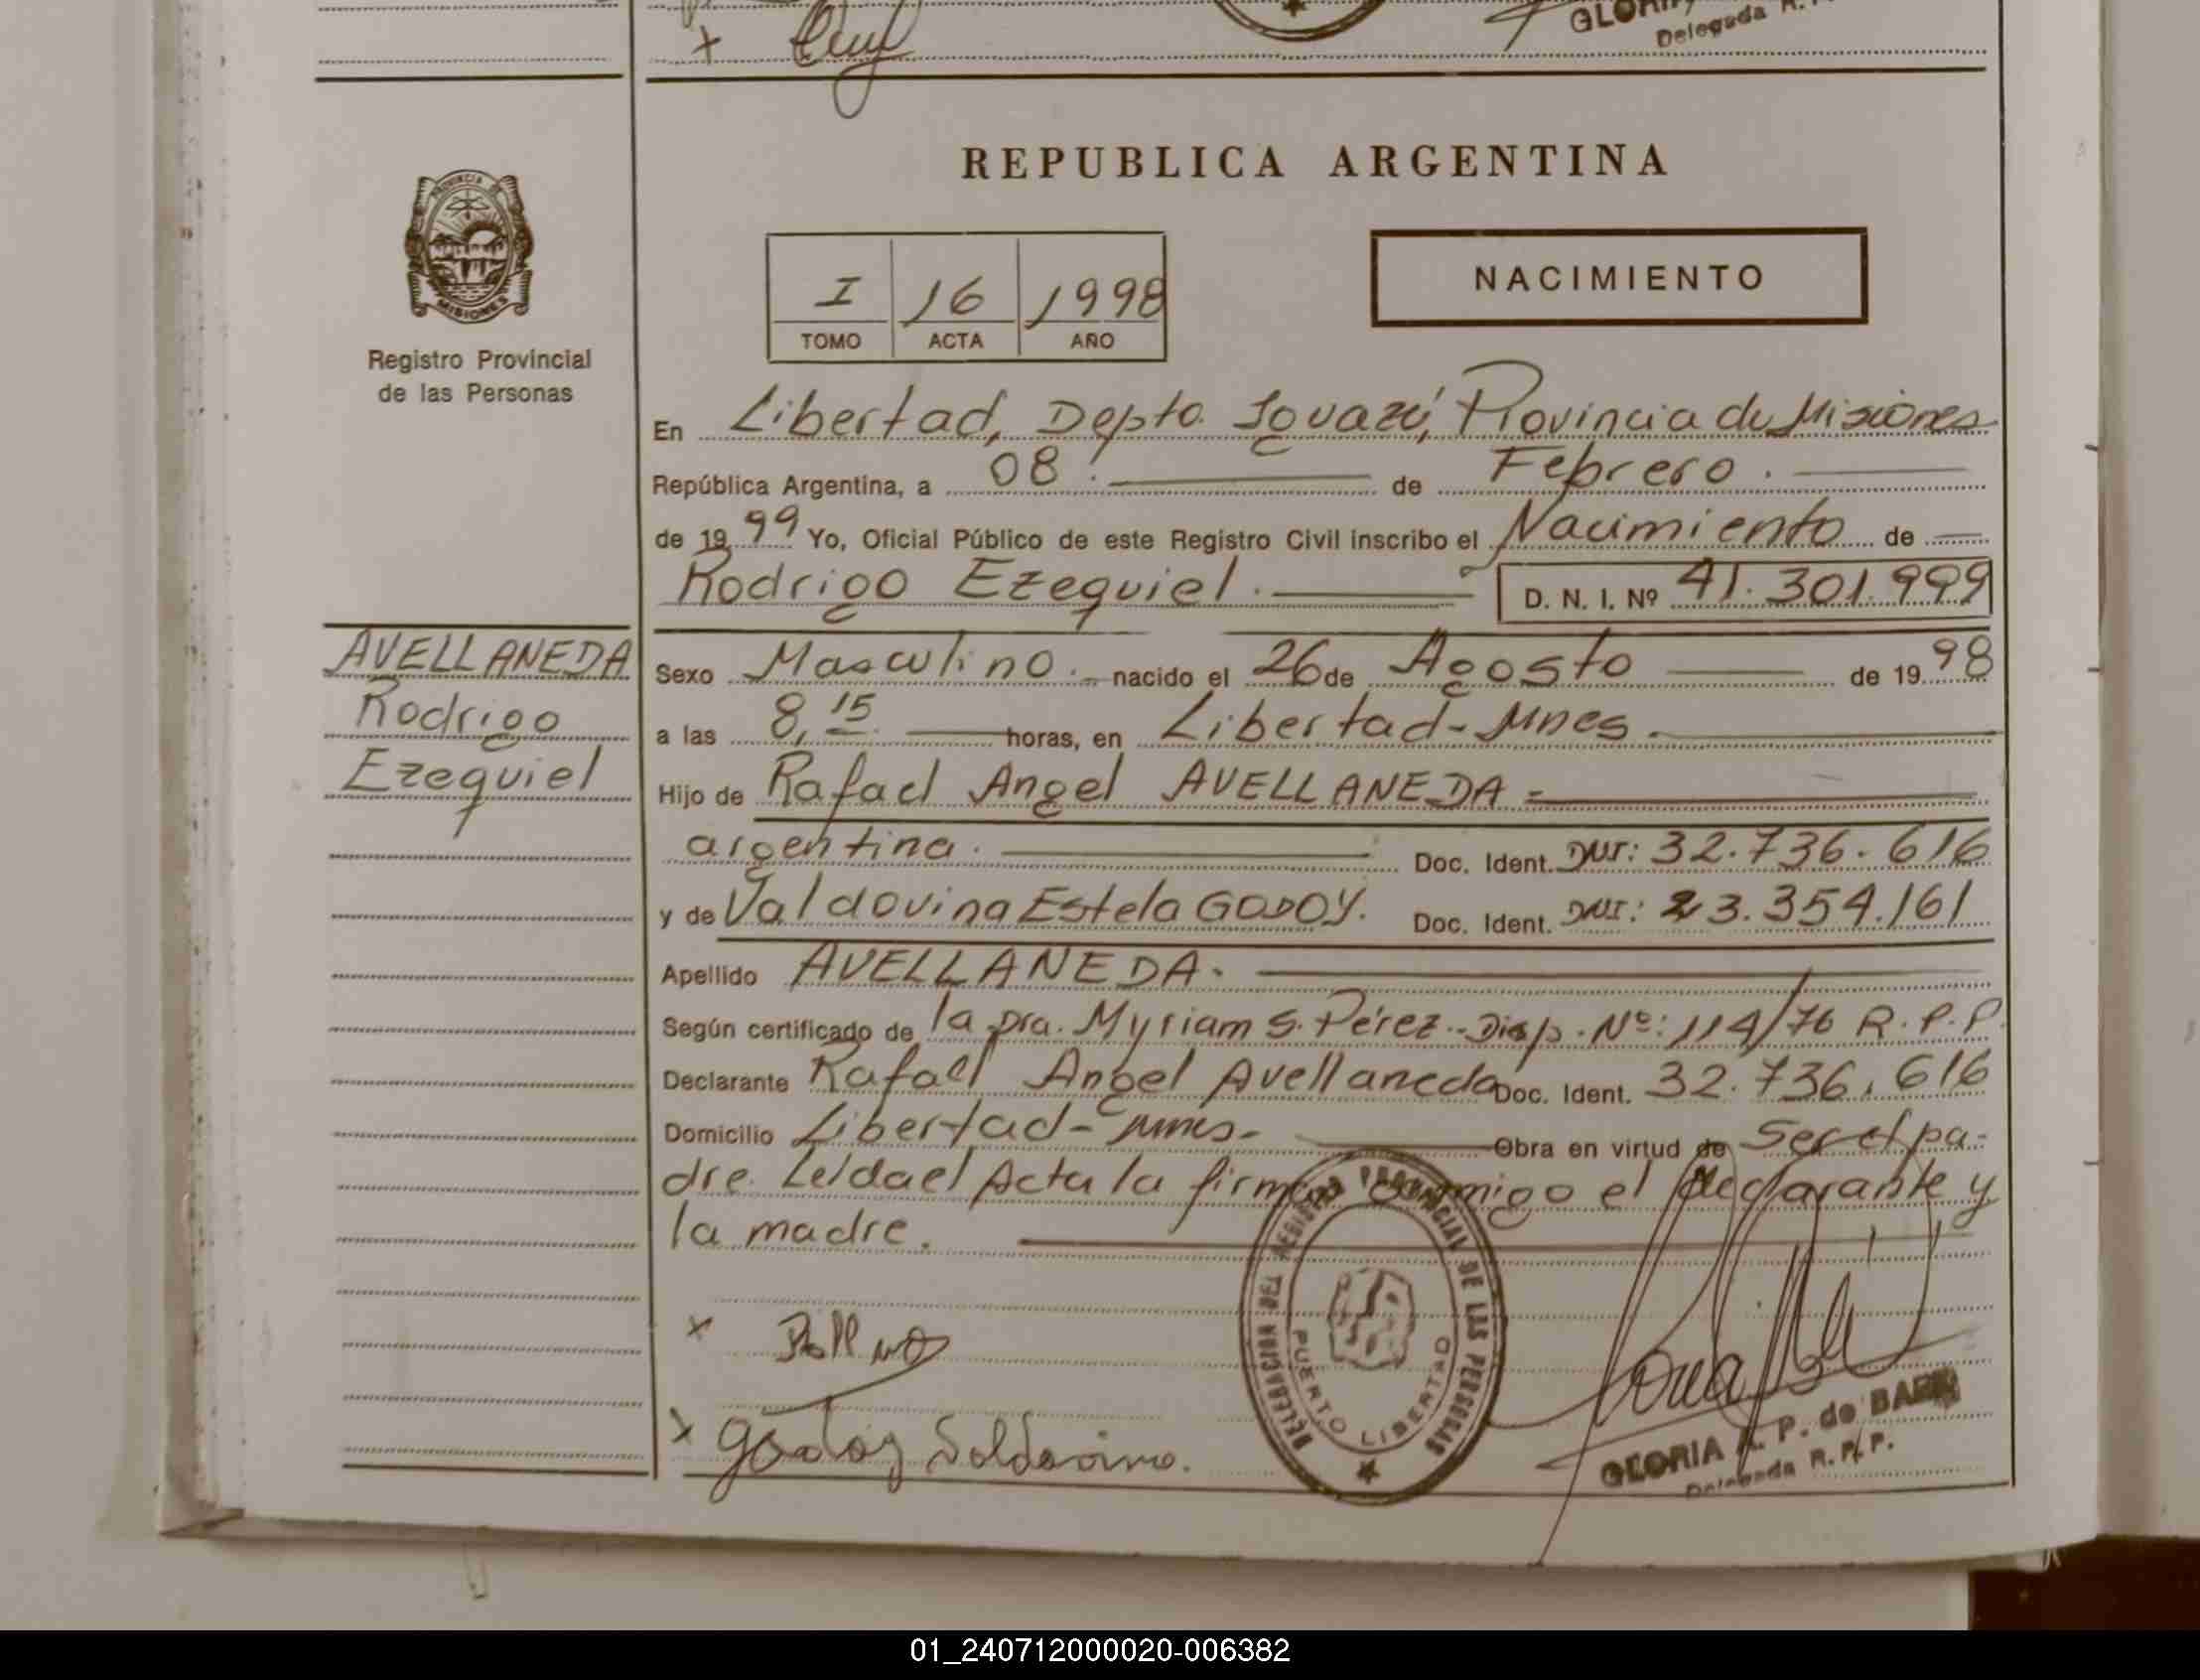 GLORIA
Delegada R.
REPUBLICA ARGENTINA
PROVINCIA DE
MISIONES
Registro Provincial
de las Personas
I 16 1998
TOMO ACTA AÑO
NACIMIENTO
En Libertad, Depto. Iguazú, Provincia de Misiones
República Argentina, a 08. de Febrero.
de 1999 Yo, Oficial Público de este Registro Civil inscribo el Nacimiento de
Rodrigo Ezequiel. D. N. I. Nº 41.301.999
AVELLANEDA
Rodrigo
Ezequiel
Sexo Masculino. nacido el 26 de Agosto de 1998
a las 8,15 horas, en Libertad-Mnes.
Hijo de Rafael Angel AVELLANEDA-
argentina. Doc. Ident. DNI: 32.736.616
y de Valdovina Estela GODOY. Doc. Ident. DNI: 23.354.161
Apellido AVELLANEDA.
Según certificado de la Dra. Myriam S. Pérez.- Disp. Nº: 114/76 R.P.P.
Declarante Rafael Angel Avellaneda Doc. Ident. 32.736.616
Domicilio Libertad-Mnes- Obra en virtud de Ser el pa-
dre. Leida el Acta la firman conmigo el declarante y
la madre.
DELEGACION DEL REGISTRO PROVINCIAL DE LAS PERSONAS
PUERTO LIBERTAD
x
x Godoy Valdovina.
GLORIA A. P. de BAEZ
Delegada R. P. P.
01_240712000020-006382